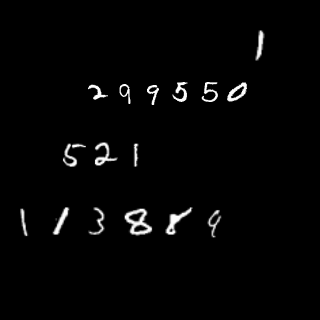 1
299550
521
113889